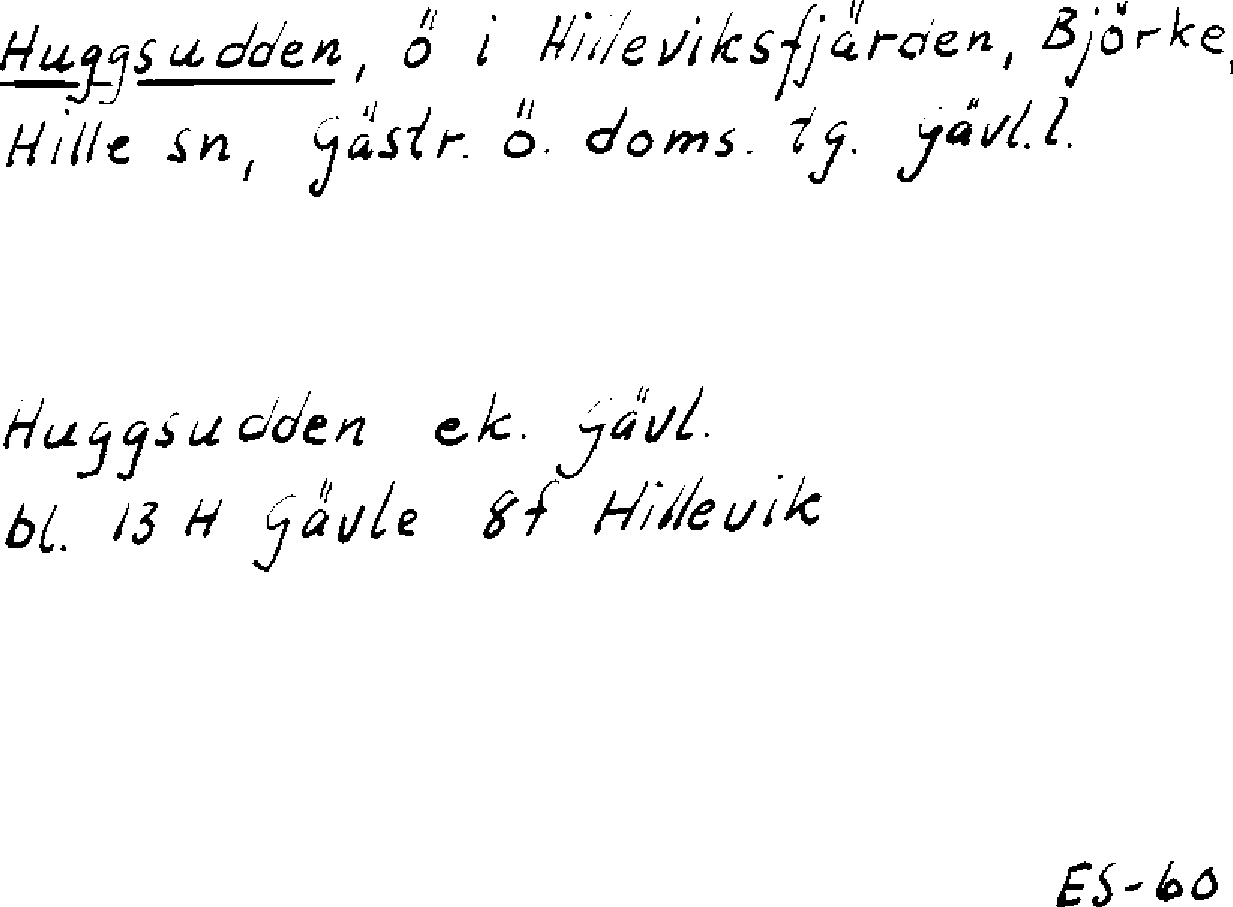 Huggsudden, ö i Hilleviksfjärden, Björke,
Hille sn, Gästr. ö. doms. tg. Gävl.l.
Huggsudden ek. Gävl.
bl. 13 H Gävle 8f Hillevik
ES-60